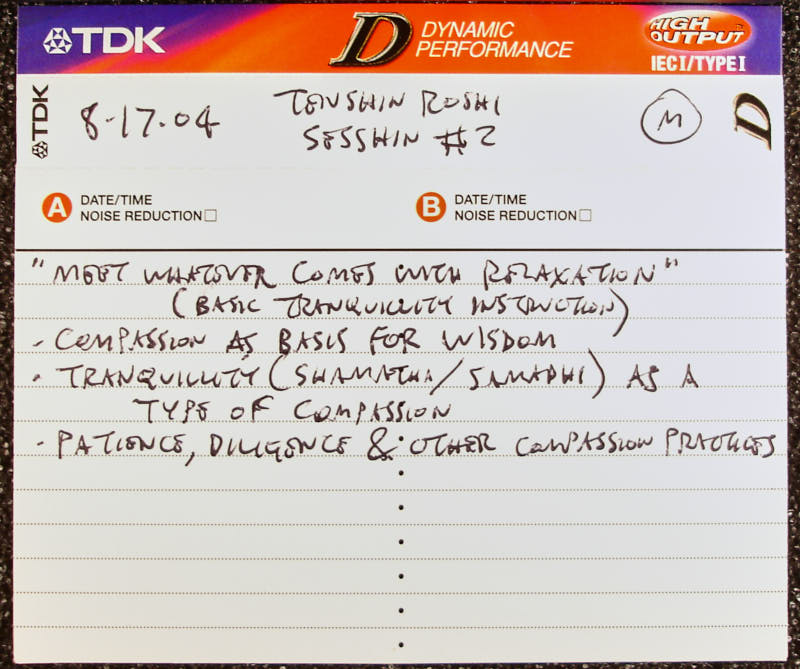 TDK D DYNAMIC PERFORMANCE HIGH OUTPUT IECI/TYPEI
TDK 8-17-04 TENSHIN ROSHI M D
SESSHIN #2
A DATE/TIME B DATE/TIME
NOISE REDUCTION□ NOISE REDUCTION□
"MEET WHATEVER COMES WITH RELAXATION"
(BASIC TRANQUILLITY INSTRUCTION)
- COMPASSION AS BASIS FOR WISDOM
- TRANQUILLITY (SHAMATHA/SAMADHI) AS A
TYPE OF COMPASSION
- PATIENCE, DILIGENCE & OTHER COMPASSION PRACTICES